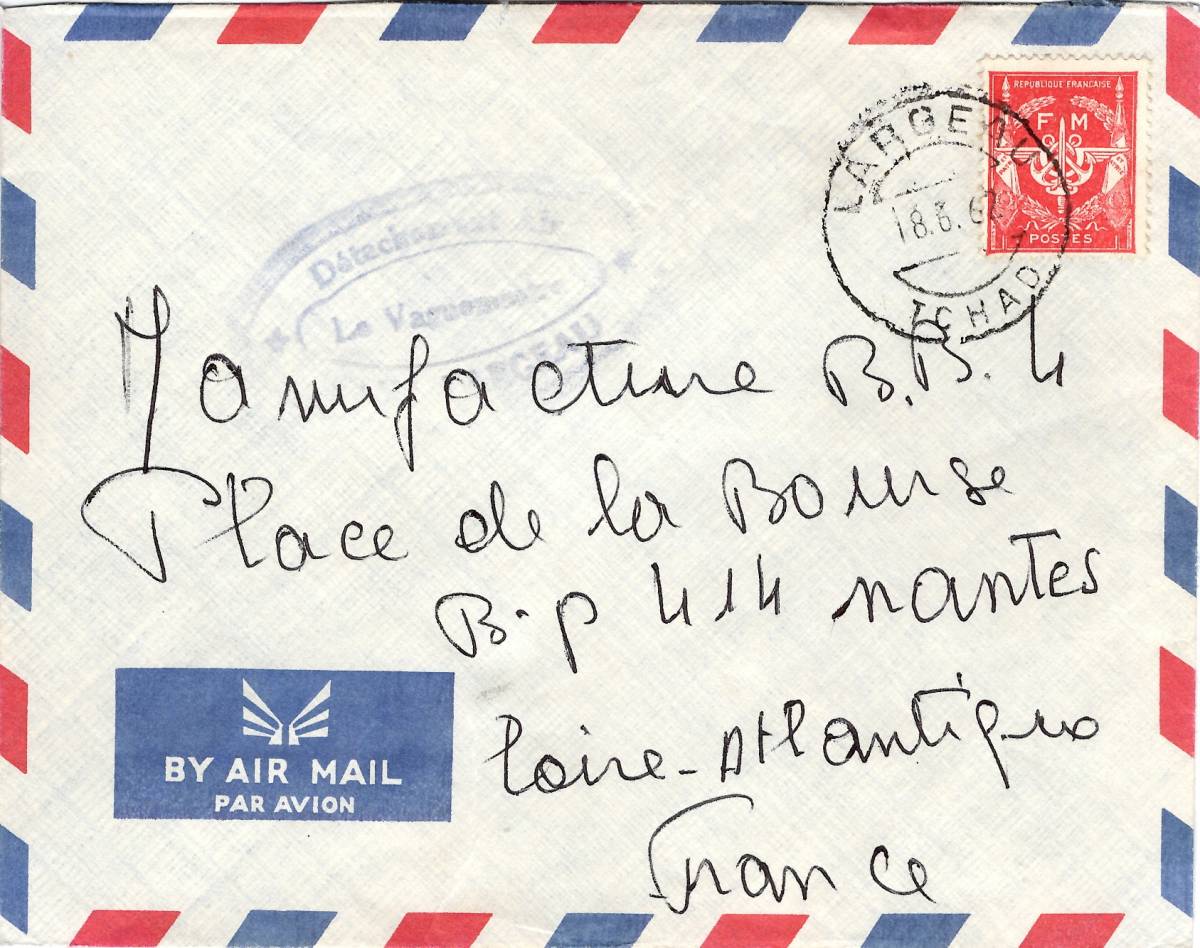 REPUBLIQUE FRANÇAISE
F M
POSTES
LARGEAU
18.6.62
TCHAD
Détachement Air
Le Vaguemestre
LARGEAU
Manufacture B.B. 4
Place de la Bourse
B.P 414 nantes
Loire-Atlantique
France
BY AIR MAIL
PAR AVION